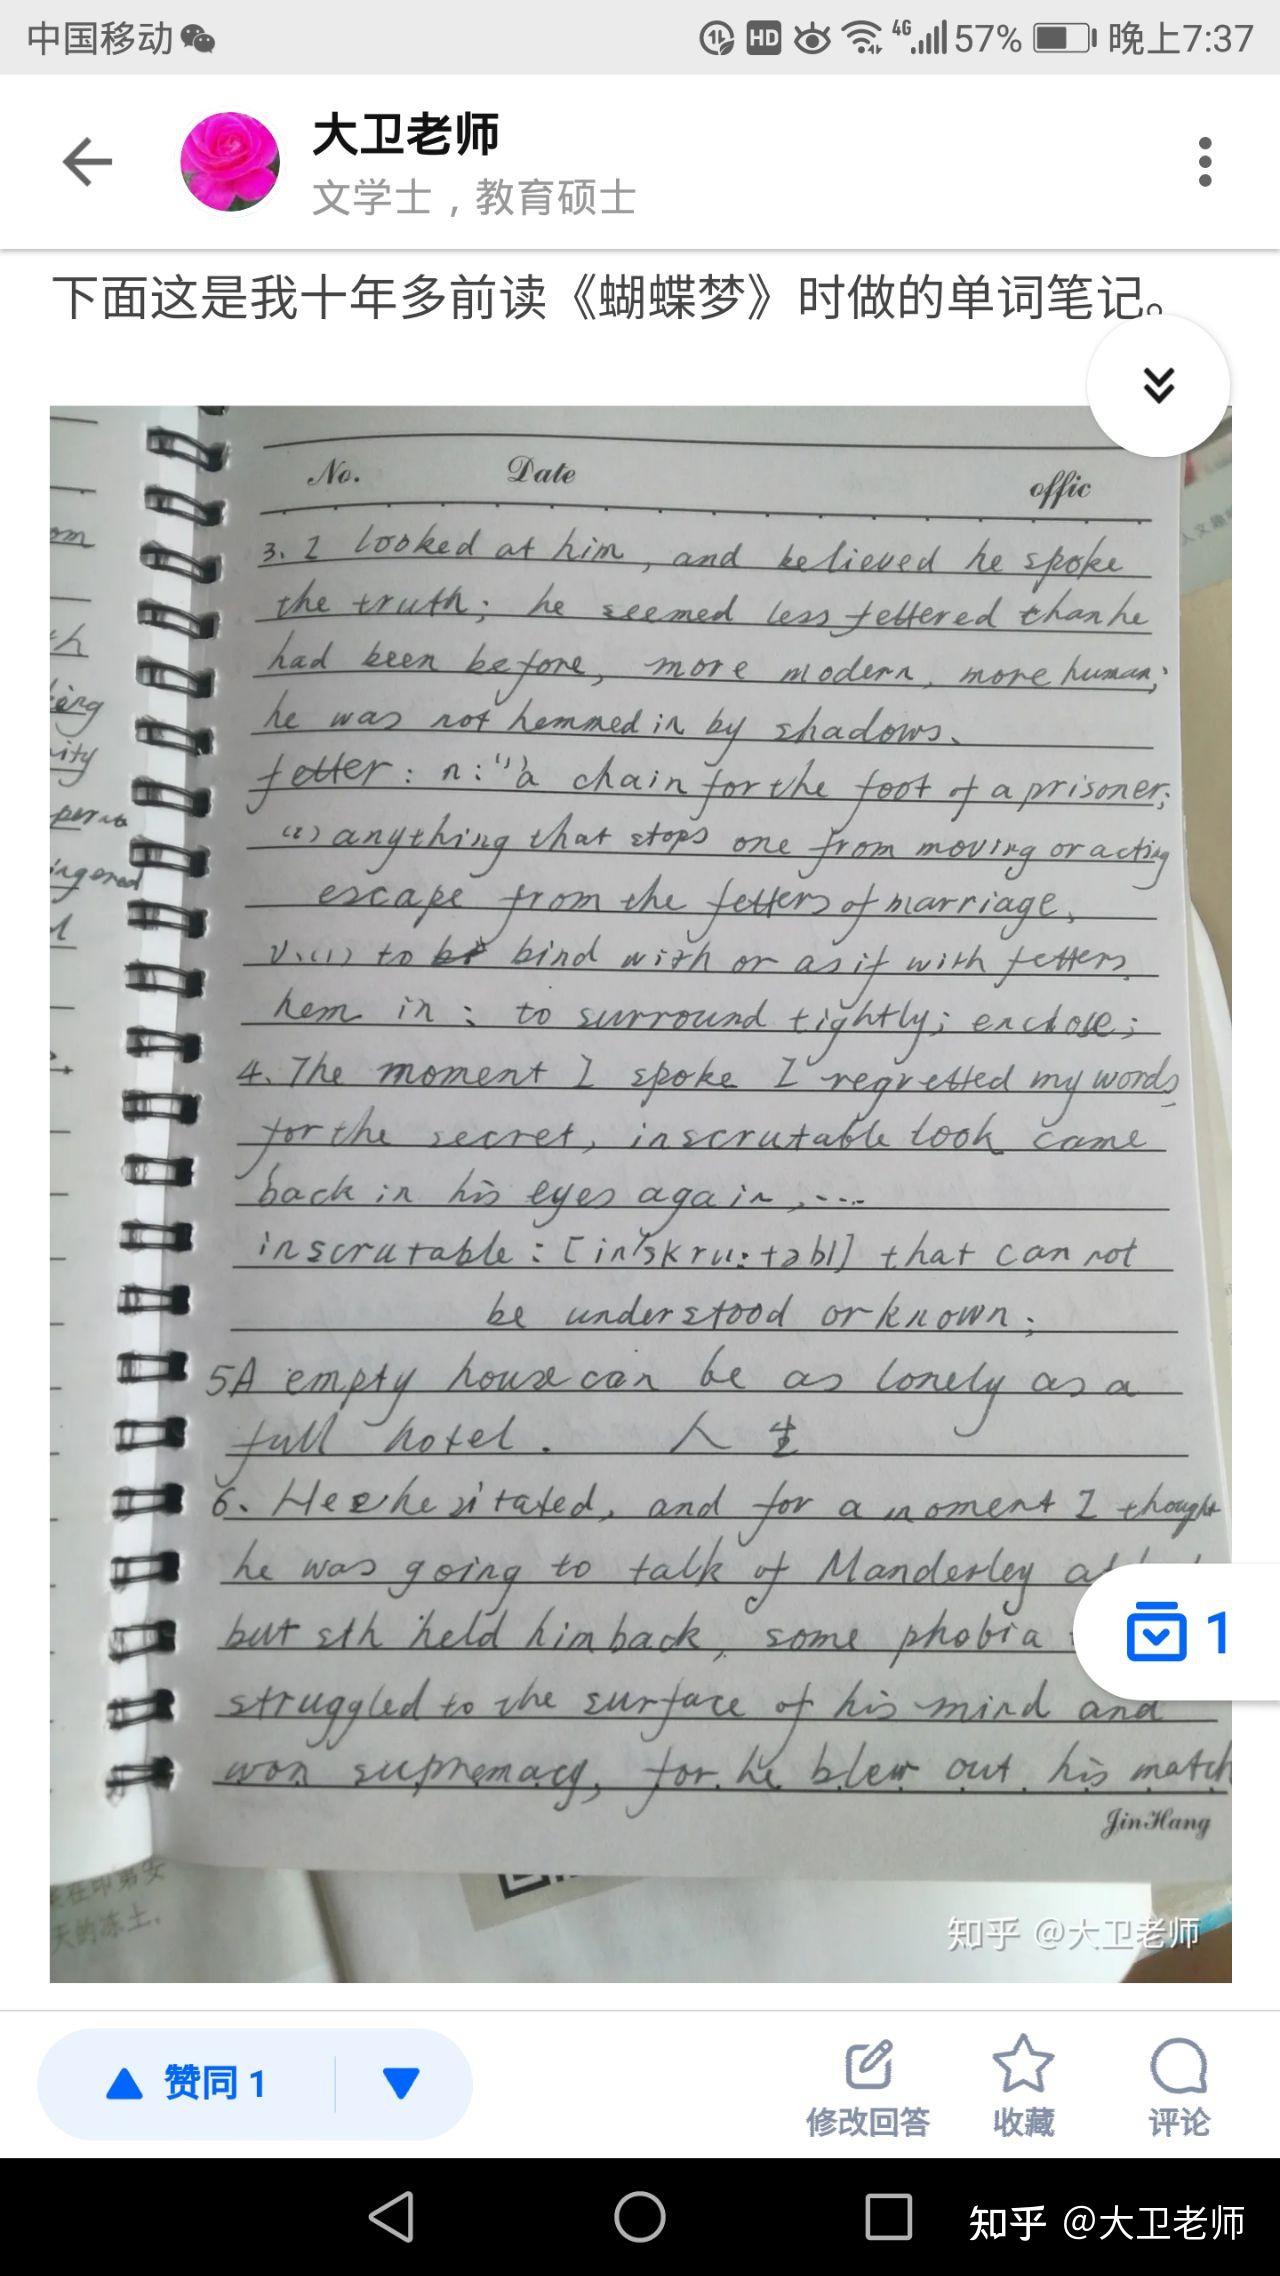 中国移动 HD 4G 57% 晚上7:37
大卫老师
文学士，教育硕士
下面这是我十年多前读《蝴蝶梦》时做的单词笔记。
No. Date offic
3. I looked at him, and believed he spoke
the truth; he seemed less fettered than he
had been before, more modern, more human;
he was not hemmed in by shadows.
fetter: n:(1) a chain for the foot of a prisoner;
(2) anything that stops one from moving or acting
escape from the fetters of marriage.
v.(1) to bind with or as if with fetters.
hem in: to surround tightly; enclose;
4. The moment I spoke I regretted my words,
for the secret, inscrutable look came
back in his eyes again, ....
inscrutable: [in'skru:təbl] that can not
be understood or known;
5A empty house can be as lonely as a
full hotel. 人生
6. He hesitated, and for a moment I thought
he was going to talk of Manderley
but sth held him back, some phobia
struggled to the surface of his mind and
won supremacy, for he blew out his match
JinHang
om
th
ity
ingered
在印第安
天的冻土,
知乎 @大卫老师
1
赞同 1
修改回答 收藏 评论
知乎 @大卫老师